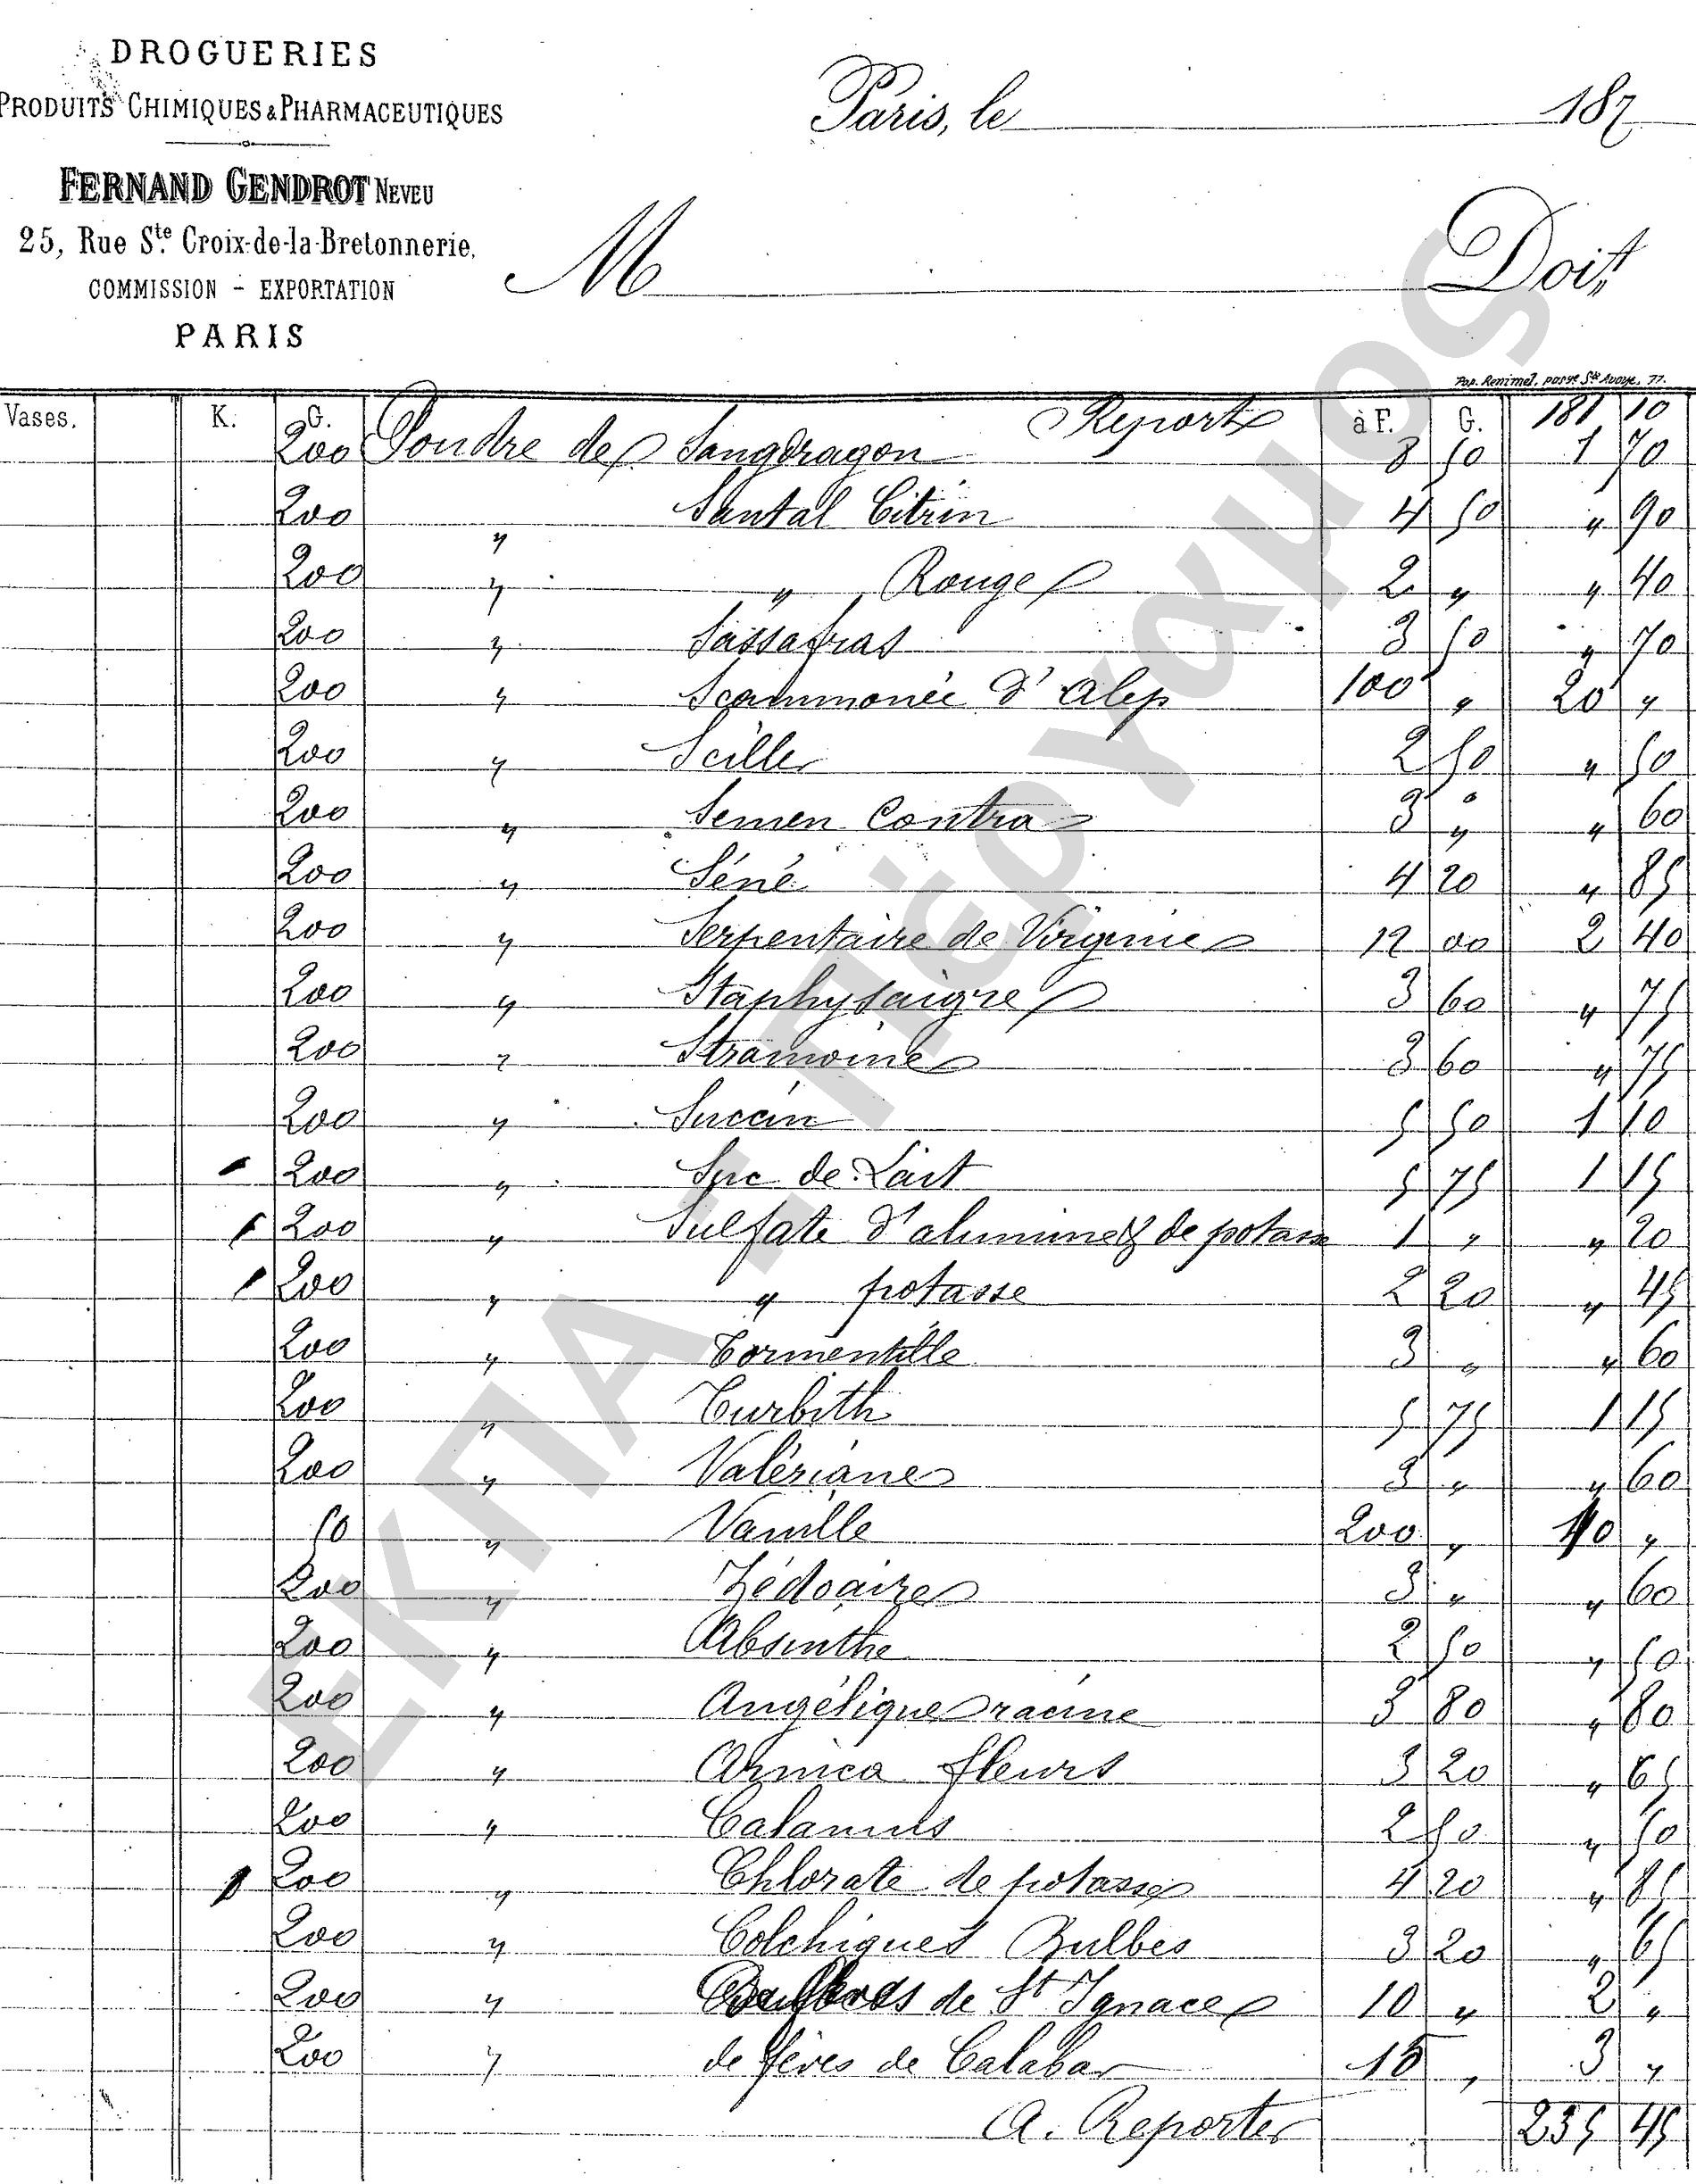 DROGUERIES
PRODUITS CHIMIQUES & PHARMACEUTIQUES
FERNAND GENDROT NEVEU
25, Rue Ste Croix-de-la-Bretonnerie,
COMMISSION - EXPORTATION
PARIS
Paris, le 187
M Doit
Pap. Renimel, passge Ste Avoye, 77.
Vases. K. G. Report à F. G. 181 10
200 Poudre de Sangdragon 8 50 1 70
200 " Santal Citrin 4 50 " 90
200 " " Rouge 2 " " 40
200 " Sassafras 3 50 " 70
200 " Scammonée d'Alep 100 " 20 "
200 " Scille 2 50 " 50
200 " Semen Contra 3 " " 60
200 " Séné 4 20 " 85
200 " Serpentaire de Virginie 12 00 2 40
200 " Staphysaigre 3 60 " 75
200 " Stramoine 3 60 " 75
200 " Succin 5 50 1 10
200 " Suc de Lait 5 75 1 15
200 " Sulfate d'alumine & de potasse 1 " " 20
200 " " potasse 2 20 " 45
200 " Tormentille 3 " " 60
200 " Turbith 5 75 1 15
200 " Valériane 3 " " 60
50 " Vanille 200 " 10 "
200 " Zédoaire 3 " " 60
200 " Absinthe 2 50 " 50
200 " Angélique racine 3 80 " 80
200 " Arnica fleurs 3 20 " 65
200 " Calamus 2 50 " 50
200 " Chlorate de potasse 4 20 " 85
200 " Colchiques Bulbes 3 20 " 65
200 " de St Ignace 10 " 2 "
200 " de fèves de Calabar 15 " 3 "
A. Reporter 235 45
ΕΚΠΑ - Πέργαμος